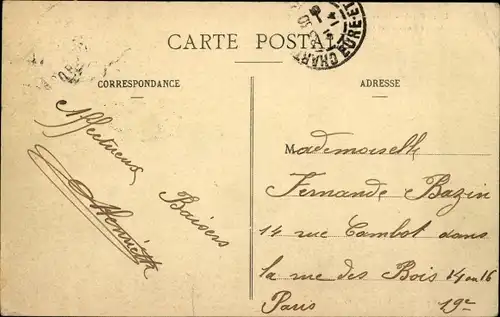 CARTE POSTALE
CHART
EURE-ET
CORRESPONDANCE
ADRESSE
Affectueux
Baisers
Henriette
Mademoiselle
Fernande Bazin
14 rue Cambot dans
la rue des Bois 14 au 16
Paris 19e